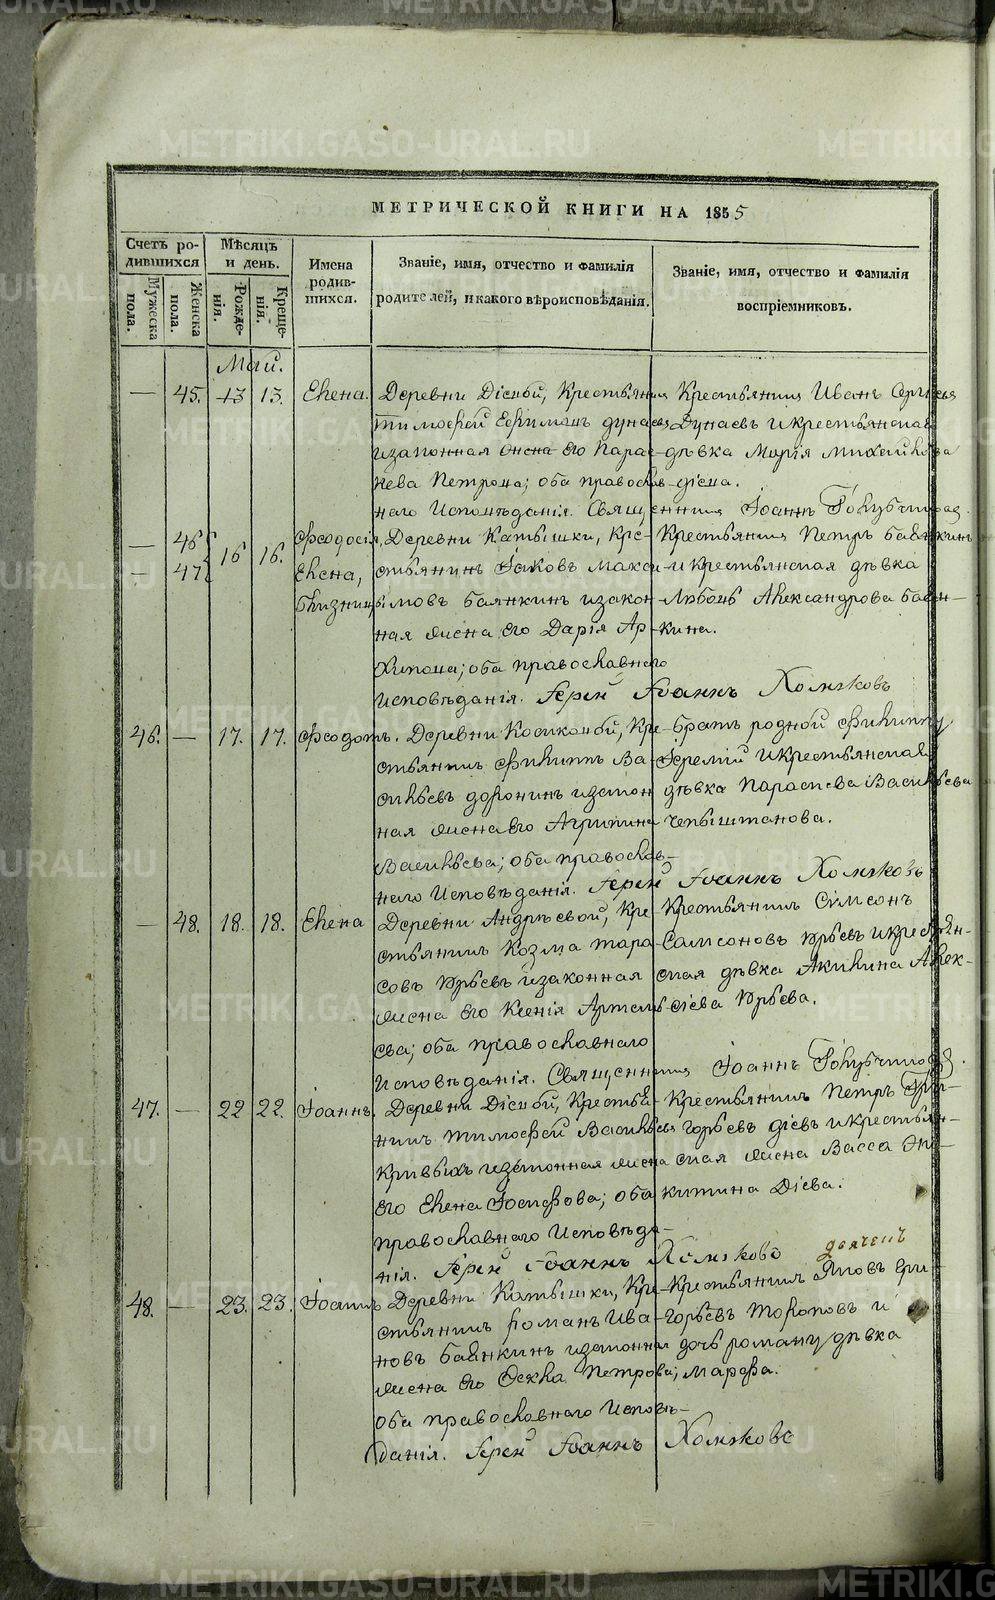 МЕТРИЧЕСКОЙ КНИГИ НА 1855
Счетъ ро-
дившихся
Мѣсяцъ
и день.
Имена
родив-
шихся.
Званіе, имя, отчество и фамилія
родителей, и какого вѣроисповѣданія.
Званіе, имя, отчество и фамилія
воспріемниковъ.
Мужеска
пола.
Женска
пола.
Рожде-
нія.
Креще-
нія.
Май.
— 45. 13 13. Елена. Деревни Дісвой, Крестьянинъ
Тимофей Ефимовъ Дунаевъ
и законная жена его Парас-
кева Петрова; оба православ-
наго Исповѣданія. Священникъ Іоаннъ
Крестьянинъ Иванъ
Дунаевъ и крестьянская
дѣвка Марія Михайлова
Дісва.
— 46 16 16. Феодосія,
— 47 Елена,
близницы
Деревни Катышки, Кре-
стьянинъ Іаковъ Макси-
мовъ Баянкинъ и закон-
ная жена его Дарія Ар-
хипова; оба православнаго
исповѣданія. Іерей Іоаннъ Хомяковъ
Крестьянинъ Петръ Баянкинъ
и крестьянская дѣвка
Любовь Александрова Баян-
кина.
46. — 17. 17. Феодотъ. Деревни Кре-
стьянинъ Филиппъ Ва-
сильевъ Доронинъ и закон
ная жена его Агрипина
Васильева; оба православ-
наго Исповѣданія. Іерей Іоаннъ Хомяковъ
Братъ родной Филиппу
Іеремій и крестьянская
дѣвка Параскева Васильева
Чепыштанова.
— 48. 18. 18. Елена Деревни Андрѣевой, Кре-
стьянинъ Козма Тара-
совъ Юрьевъ и законная
жена его Ксенія Артемь-
ева; оба православнаго
Исповѣданія. Священникъ Іоаннъ
Крестьянинъ Симсонъ
Самсоновъ Юрьевъ и крестьян-
ская дѣвка Акилина Алек-
сіева Юрьева.
47. — 22 22. Іоаннъ. Деревни Дісвой, Крестья-
нинъ Тимофей Васильевъ
Кривыхъ и законная жена
его Елена Іосифова; оба
православнаго Исповѣда-
нія. Іерей Іоаннъ Хомяковъ
Крестьянинъ Петръ Гри-
горьевъ Дісвъ и крестьян-
ская жена Васса Ни-
китина Дісва.
48. — 23. 23. Іоаннъ Деревни Катышки, Кре-
стьянинъ Романъ Ива-
новъ Баянкинъ и законная
жена его Ѳекла Петрова;
оба православнаго Исповѣ-
данія. Іерей Іоаннъ Хомяковъ
Крестьянинъ Яковъ Гри-
горьевъ Тороповъ и
дочь Роману дѣвка
Марфа.
METRIKI.GASO-URAL.RU